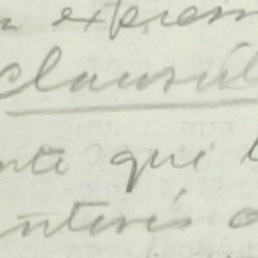 expresa
clausul
nte que l
interés